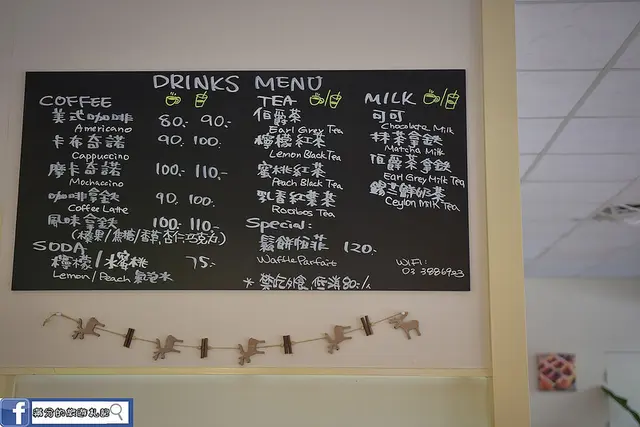 DRINKS MENU
COFFEE
美式咖啡 80.- 90.-
Americano
卡布奇諾 90. 100.
Cappuccino
摩卡奇諾 100.- 110.-
Mochaccino
咖啡拿鐵 90. 100.
Coffee Latte
風味拿鐵 100.- 110.-
(榛果/焦糖/香草/杏仁巧克力)
SODA
檸檬/水蜜桃 75.-
Lemon/Peach 氣泡水
TEA
伯爵茶
Earl Grey Tea
檸檬紅茶
Lemon Black Tea
蜜桃紅茶
Peach Black Tea
乳香紅葉茶
Rooibos Tea
Special:
鬆餅份菲 120.
Waffle Parfait
* 禁吃外食,低消80./人
MILK
可可
Chocolate Milk
抹茶拿鐵
Matcha Milk
伯爵茶拿鐵
Earl Grey Milk Tea
錫蘭鮮奶茶
Ceylon Milk Tea
WiFi:
03 3886923
f 滿分的旅遊札記